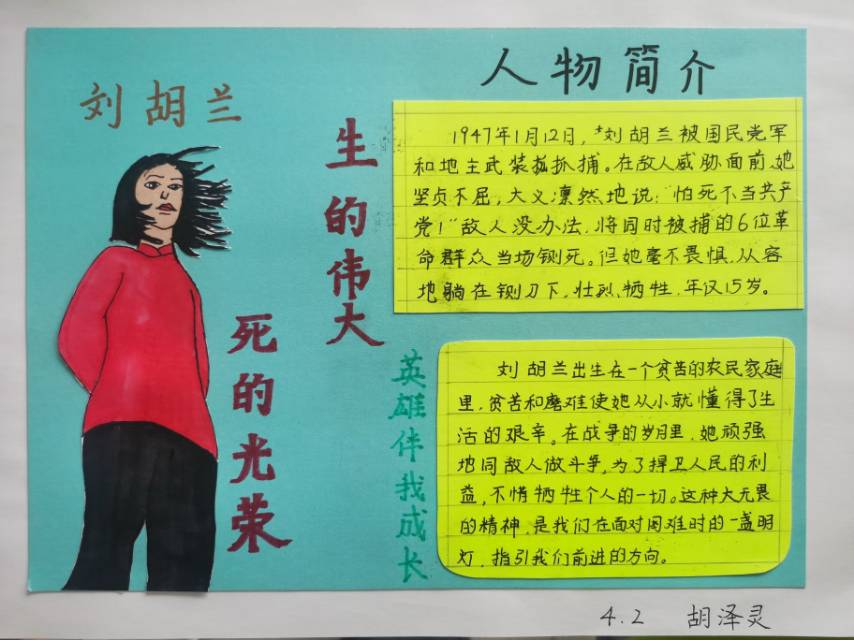 人物简介
刘胡兰
生的伟大
死的光荣
英雄伴我成长
1947年1月12日,刘胡兰被国民党军
和地主武装抓捕。在敌人威胁面前,她
坚贞不屈,大义凛然地说:“怕死不当共产
党!”敌人没办法,将同时被捕的6位革
命群众当场铡死。但她毫不畏惧,从容
地躺在铡刀下,壮烈牺牲,年仅15岁。
刘胡兰出生在一个贫苦的农民家庭
里,贫苦和磨难使她从小就懂得了生
活的艰辛。在战争的岁月里,她顽强
地同敌人做斗争,为了捍卫人民的利
益,不惜牺牲个人的一切。这种大无畏
的精神,是我们在面对困难时的一盏明
灯,指引我们前进的方向。
4.2 胡泽灵